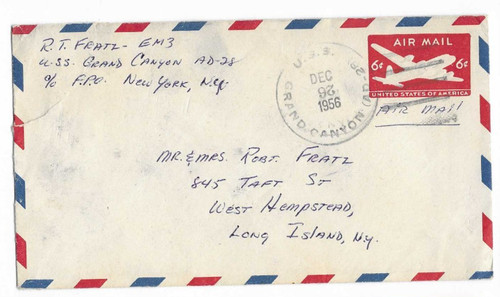 R.T. FRATZ - EM3
U.S.S. GRAND CANYON AD-28
c/o F.P.O. NEW YORK, N.Y.
U.S.S.
GRAND CANYON (AD-28)
DEC
26
1956
AIR MAIL
6¢ 6¢
UNITED STATES OF AMERICA
AIR MAIL
MR. & MRS. ROBT. FRATZ
845 TAFT ST
WEST HEMPSTEAD,
LONG ISLAND, N.Y.